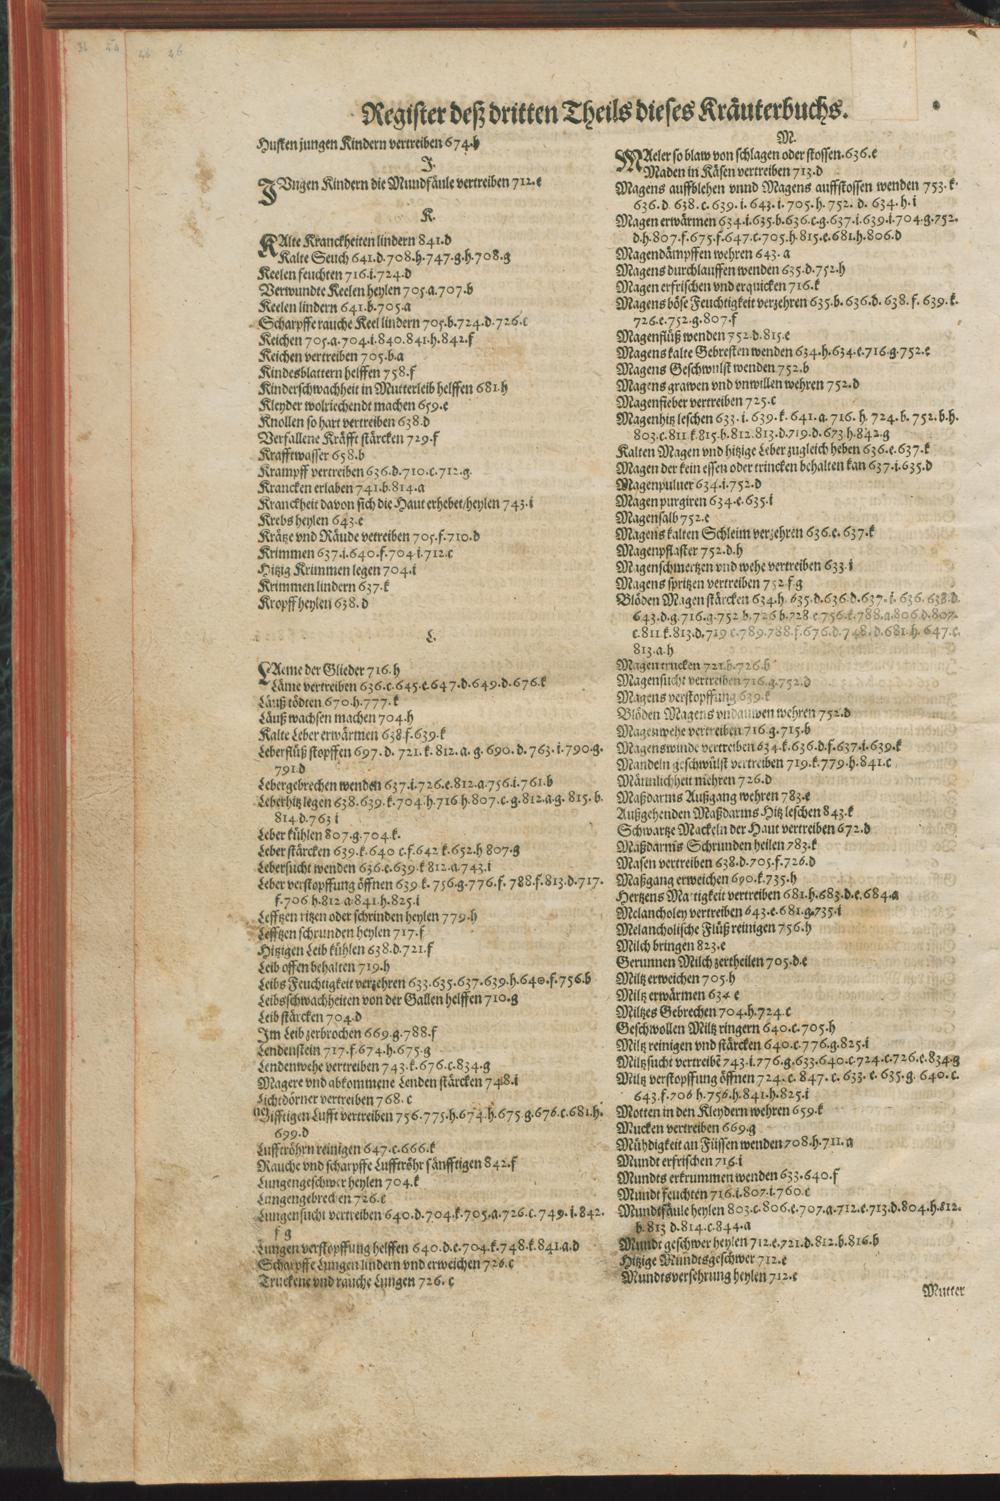 Register deß dritten Theils dieses Kräuterbuchs.
Husten jungen Kindern vertreiben 674.b
J.
JVngen Kindern die Mundfäule vertreiben 712.e
K.
KAlte Kranckheiten lindern 841.d
Kalte Seuch 641.d.708.h.747.g.h.708.g
Keelen feuchten 716.i.724.d
Verwundte Keelen heylen 705.a.707.b
Keelen lindern 641.b.705.a
Scharpffe rauche Keel lindern 705.b.724.d.726.e
Keichen 705.a.704.i.840.841.h.842.f
Keichen vertreiben 705.b.a
Kindesblattern helffen 758.f
Kinderschwachheit in Mutterleib helffen 681.h
Kleyder wolriechendt machen 659.e
Knollen so hart vertreiben 638.d
Verfallene Kräfft stärcken 729.f
Krafftwasser 658.b
Krampff vertreiben 636.d.710.c.712.g.
Krancken erlaben 741.b.814.a
Kranckheit davon sich die Haut erhebet/heylen 743.i
Krebs heylen 643.e
Krätze vnd Räude vetreiben 705.f.710.d
Krimmen 637.i.640.f.704 i.712.c
Hitzig Krimmen legen 704.i
Krimmen lindern 637.k
Kropff heylen 638.d
L.
LAeme der Glieder 716.h
Läme vertreiben 636.c.645.e.647.d.649.d.676.k
Läuß tödten 670.h.777.k
Läuß wachsen machen 704.h
Kalte Leber erwärmen 638.f.639.k
Leberflüß stopffen 697.d. 721.k. 812.a.g. 690.d. 763.i.790.g.
791.d
Lebergebrechen wenden 637.i.726.e.812.a.756.i.761.b
Leberhitz legen 638.639.k.704.h.716 h.807.c.g.812.a.g. 815.b.
814.d.763 i
Leber kühlen 807.g.704.k.
Leber stärcken 639.k.640 c.f.642 k.652.h 807.g
Lebersucht wenden 636.e.639.k 812.a.743.i
Leber verstopffung öffnen 639 k. 756.g.776.f. 788.f.813.d.717.
f.706 h.812 a.841.h.825.i
Lefftzen ritzen oder schrinden heylen 779.h
Lefftzen schrunden heylen 717.f
Hitzigen Leib kühlen 638.d.721.f
Leib offen behalten 719.h
Leibs Feuchtigkeit verzehren 633.635.637.639.h.640.f.756.b
Leibsschwachheiten von der Gallen helffen 710.g
Leib stärcken 704.d
Im Leib zerbrochen 669.g.788.f
Lendenstein 717.f.674.h.675.g
Lendenwehe vertreiben 743.k.676.c.834.g
Magere vnd abkommene Lenden stärcken 748.i
Lichtdörner vertreiben 768.c
Gifftigen Lufft vertreiben 756.775.h.674.h.675 g.676.c.681.h.
699.d
Lufftröhrn reinigen 647.c.666.k
Rauche vnd scharpffe Lufftröhr sänfftigen 842.f
Lungengeschwer heylen 704.k
Lungengebrechen 726.e
Lungensucht vertreiben 640.d.704.k.705.a.726.c.749.i.842.
f g
Lungen verstopffung helffen 640.d.e.704.k.748.k.841.a.d
Scharpffe Lungen lindern vnd erweichen 726.c
Truckene vnd rauche Lungen 726.c
M.
MAeler so blaw von schlagen oder stossen.636.e
Maden in Käsen vertreiben 713.d
Magens auffblehen vnnd Magens auffstossen wenden 753.k.
636.d. 638.c. 639.i. 643.i.705.h. 752. d. 634.h.i
Magen erwärmen 634.i.635.b.636.c.g.637.i.639.i.704.g.752.
d.h.807.f.675.f.647.c.705.h.815.e.681.h.806.d
Magendämpffen wehren 643.a
Magens durchlauffen wenden 635.d.752.h
Magen erfrischen vnd erquicken 716.k
Magens böse Feuchtigkeit verzehren 635.b. 636.d. 638.f. 639.k.
726.e.752.g.807.f
Magenflüß wenden 752.d.815.e
Magens kalte Gebresten wenden 634.h.634.e.716.g.752.e
Magens Geschwulst wenden 752.b
Magens grawen vnd vnwillen wehren 752.d
Magenfieber vertreiben 725.c
Magenhitz leschen 633.i. 639.k. 641.a. 716.h. 724.b. 752.b.h.
803.c.811 k.815.b.812.813.d.719.d.673 h.842.g
Kalten Magen vnd hitzige Leber zugleich heben 636.e.637.k
Magen der kein essen oder trincken behalten kan 637.i.635.d
Magenpuluer 634.i.752.d
Magen purgiren 634.e.635.i
Magensalb 752.e
Magens kalten Schleim verzehren 636.e. 637.k
Magenpflaster 752.d.h
Magenschmertzen vnd wehe vertreiben 633.i
Magens spritzen vertreiben 752 f g
Blöden Magen stärcken 634.h. 635.d.636.d.637.i. 636. 638.d.
643.d.g.716.g.752 b.726 b.728 e 756.k.788.a.806 d.807.
c.811.k.813.d.719 c.789.788.f.676.d.748.d.681.h. 647.c.
813.a.h
Magen trucken 721.h.726.b
Magensucht vertreiben 716.g.752.d
Magens verstopffung 639.k
Blöden Magens vndauwen wehren 752.d
Magenwehe vertreiben 716.g.715.b
Magenswinde vertreiben 634.k.636.d.f.637.i.639.k
Mandeln geschwülst vertreiben 719.k.779.h.841.c
Männlichheit mehren 726.d
Maßdarms Außgang wehren 783.e
Außgehenden Maßdarms Hitz leschen 843.k
Schwartze Mackeln der Haut vertreiben 672.d
Maßdarms Schrunden heilen 783.k
Masen vertreiben 638.d.705.f.726.d
Maßgang erweichen 690.k.735.h
Hertzens Mattigkeit vertreiben 681.h.683.d.e.684.a
Melancholey vertreiben 643.e.681.g.735.i
Melancholische Flüß reinigen 756.h
Milch bringen 823.e
Gerunnen Milch zertheilen 705.d.e
Miltz erweichen 705.h
Miltz erwärmen 634 e
Miltzes Gebrechen 704.h.724.c
Geschwollen Miltz ringern 640.c.705.h
Miltz reinigen vnd stärcken 640.c.776.g.825.i
Miltzsucht vertreibẽ 743.i.776.g.633.640.c.724.c.726.e.834.g
Miltz verstopffung öffnen 724.c. 847.c. 633.e. 635.g. 640.c.
643.f.706 h.756.h.841.h.825.i
Motten in den Kleydern wehren 659.k
Mucken vertreiben 669.g
Mühdigkeit an Füssen wenden 708.h.711.a
Mundt erfrischen 716.i
Mundts erkrummen wenden 633.640.f
Mundt feuchten 716.i.807.i.760.e
Mundtfäule heylen 803.c.806.e.707.a.712.e.713.d.804.h.812.
b.813 d.814.c.844.a
Mundt geschwer heylen 712.e.721.d.812.b.816.b
Hitzige Mundtsgeschwer 712.e
Mundtsversehrung heylen 712.e
Mutter